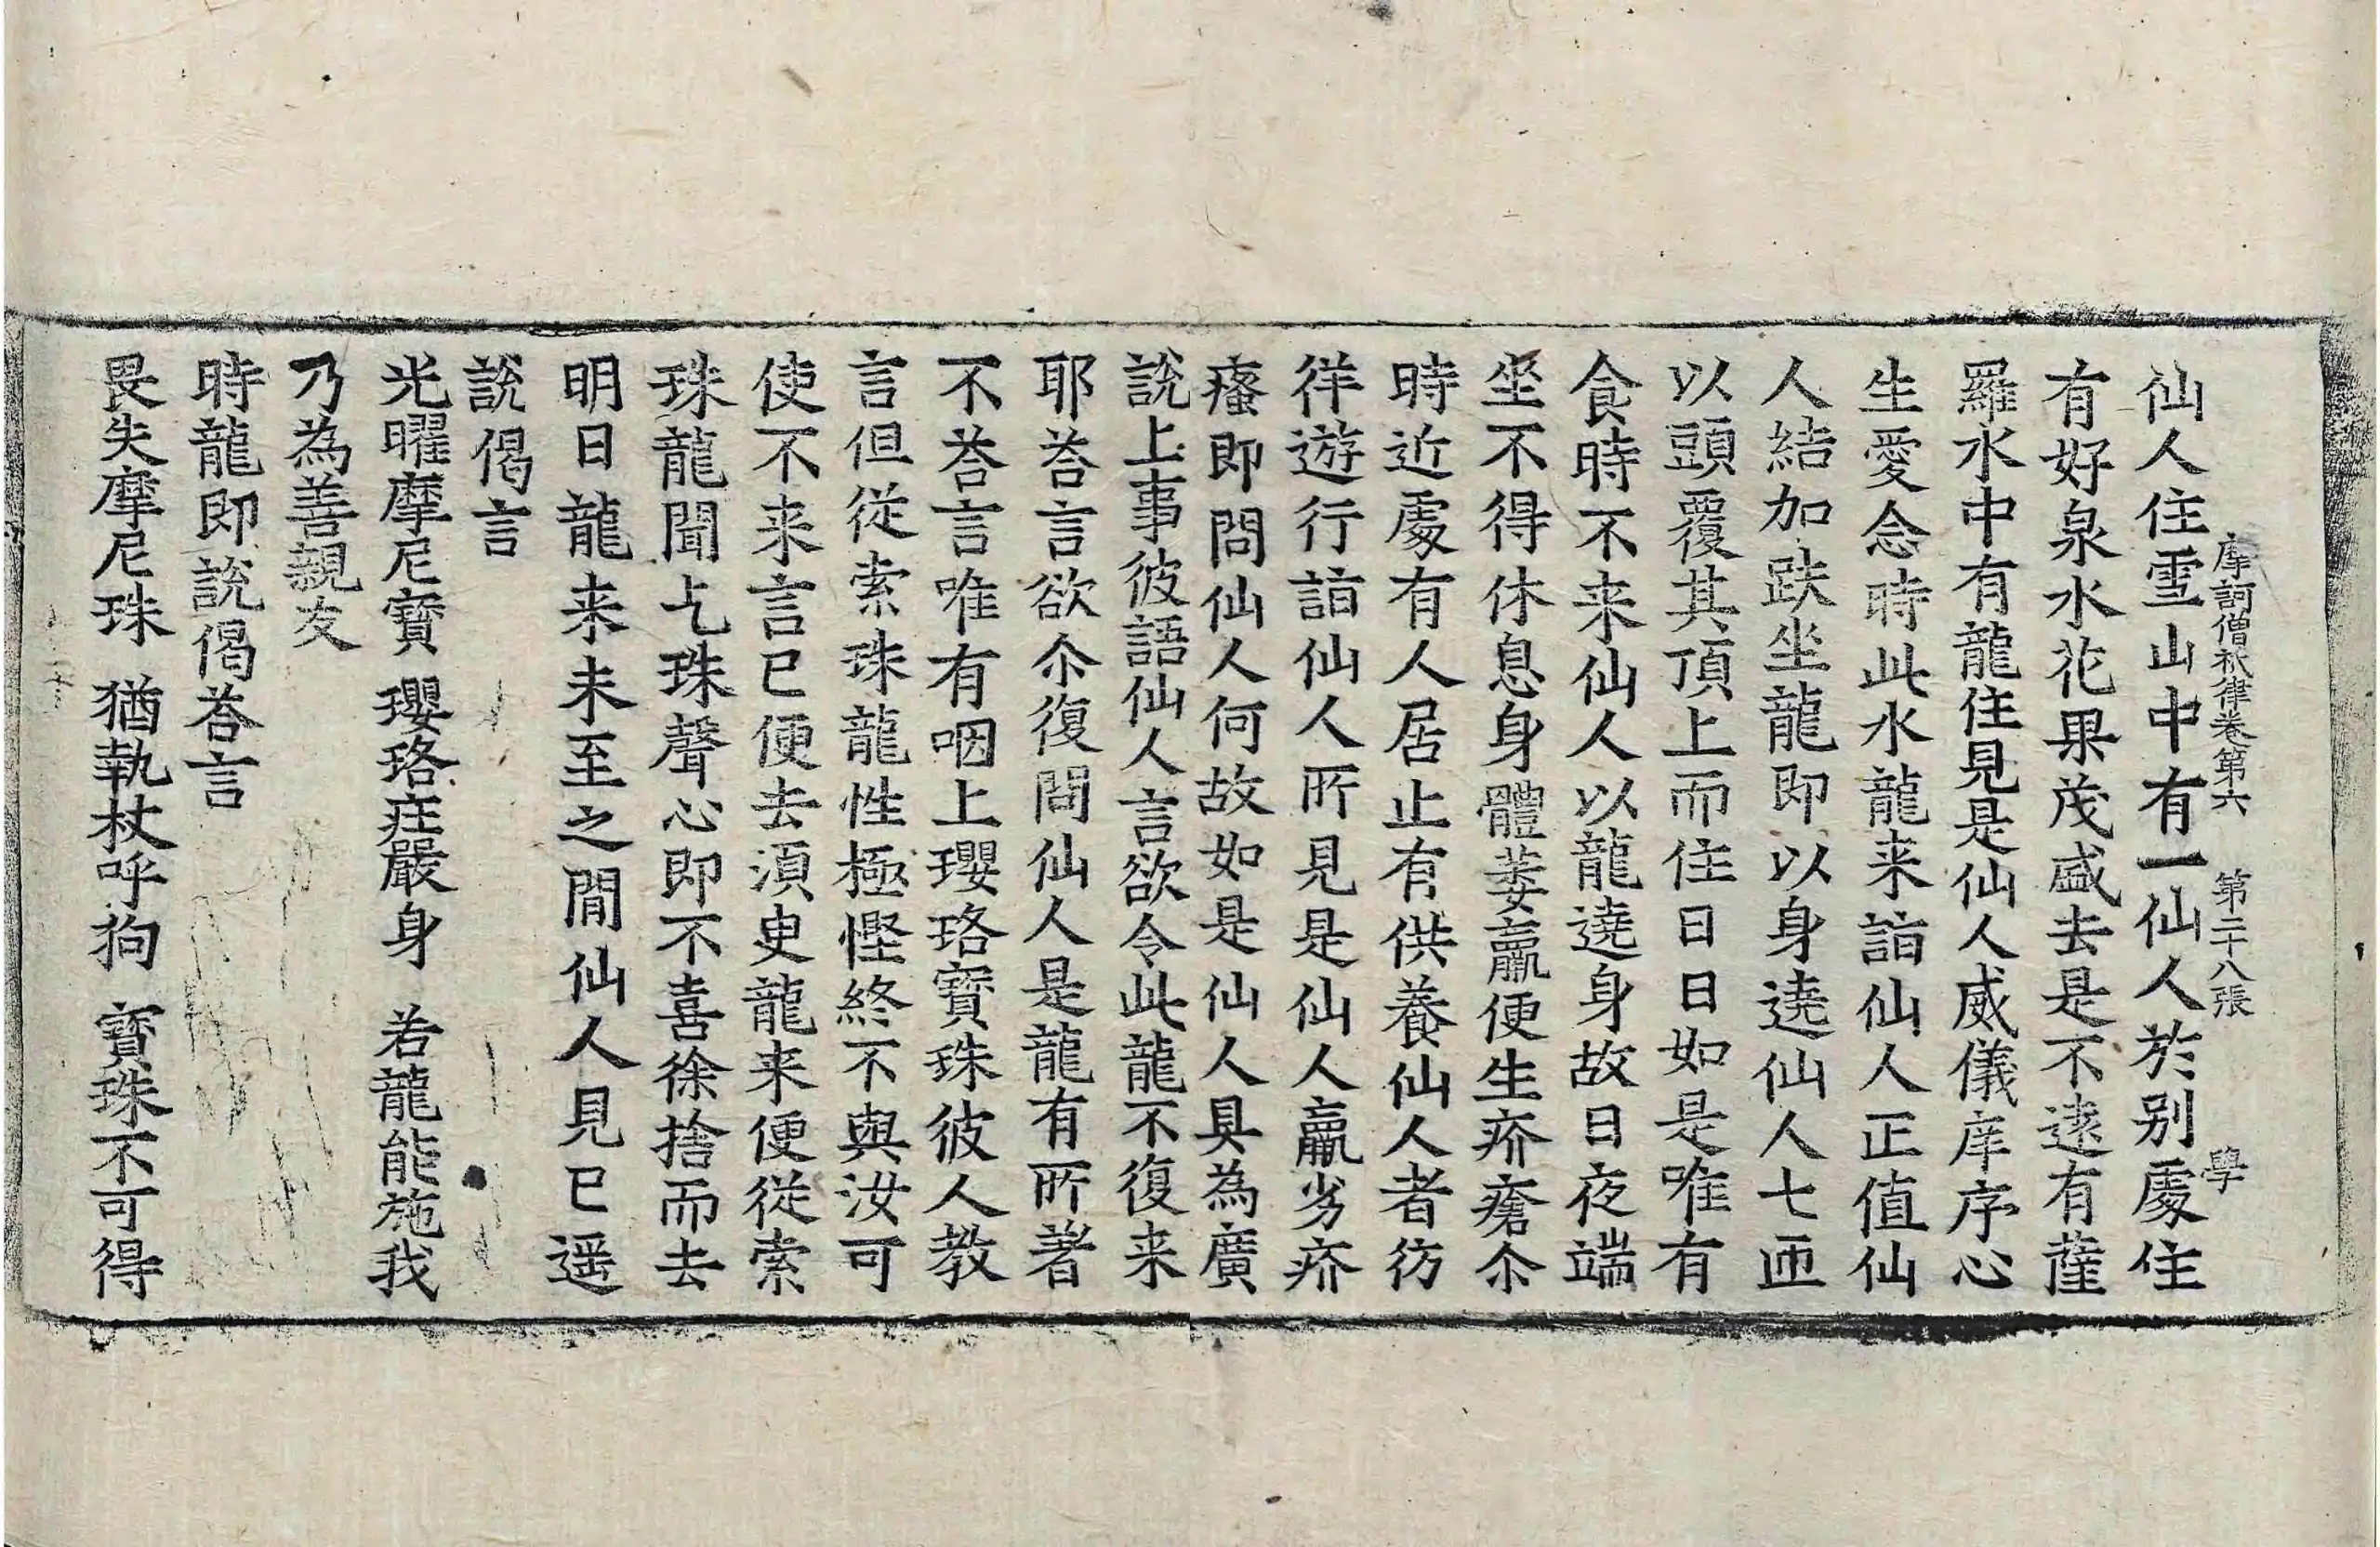 摩訶僧祇律卷第六 第二十八張 學
仙人住雪山中有一仙人於别處住
有好泉水花果茂盛去是不遠有薩
羅水中有龍住見是仙人威儀庠序心
生愛念時此水龍来詣仙人正值仙
人結加趺坐龍即以身遶仙人七匝
以頭覆其頂上而住日日如是唯有
食時不来仙人以龍遶身故日夜端
坐不得休息身體萎羸便生疥瘡尒
時近處有人居止有供養仙人者彷
徉遊行詣仙人所見是仙人羸劣疥
瘙即問仙人何故如是仙人具為廣
說上事彼語仙人言欲令此龍不復来
耶荅言欲尒復問仙人是龍有所著
不荅言唯有咽上瓔珞寶珠彼人教
言但從索珠龍性極慳終不與汝可
使不来言已便去湏臾龍来便從索
珠龍聞乞珠聲心即不喜徐捨而去
明日龍来未至之間仙人見已遥
說偈言
光曜摩尼寶 瓔珞莊嚴身 若龍能施我
乃為善親友
時龍即說偈荅言
畏失摩尼珠 猶執杖呼狗 寶珠不可得